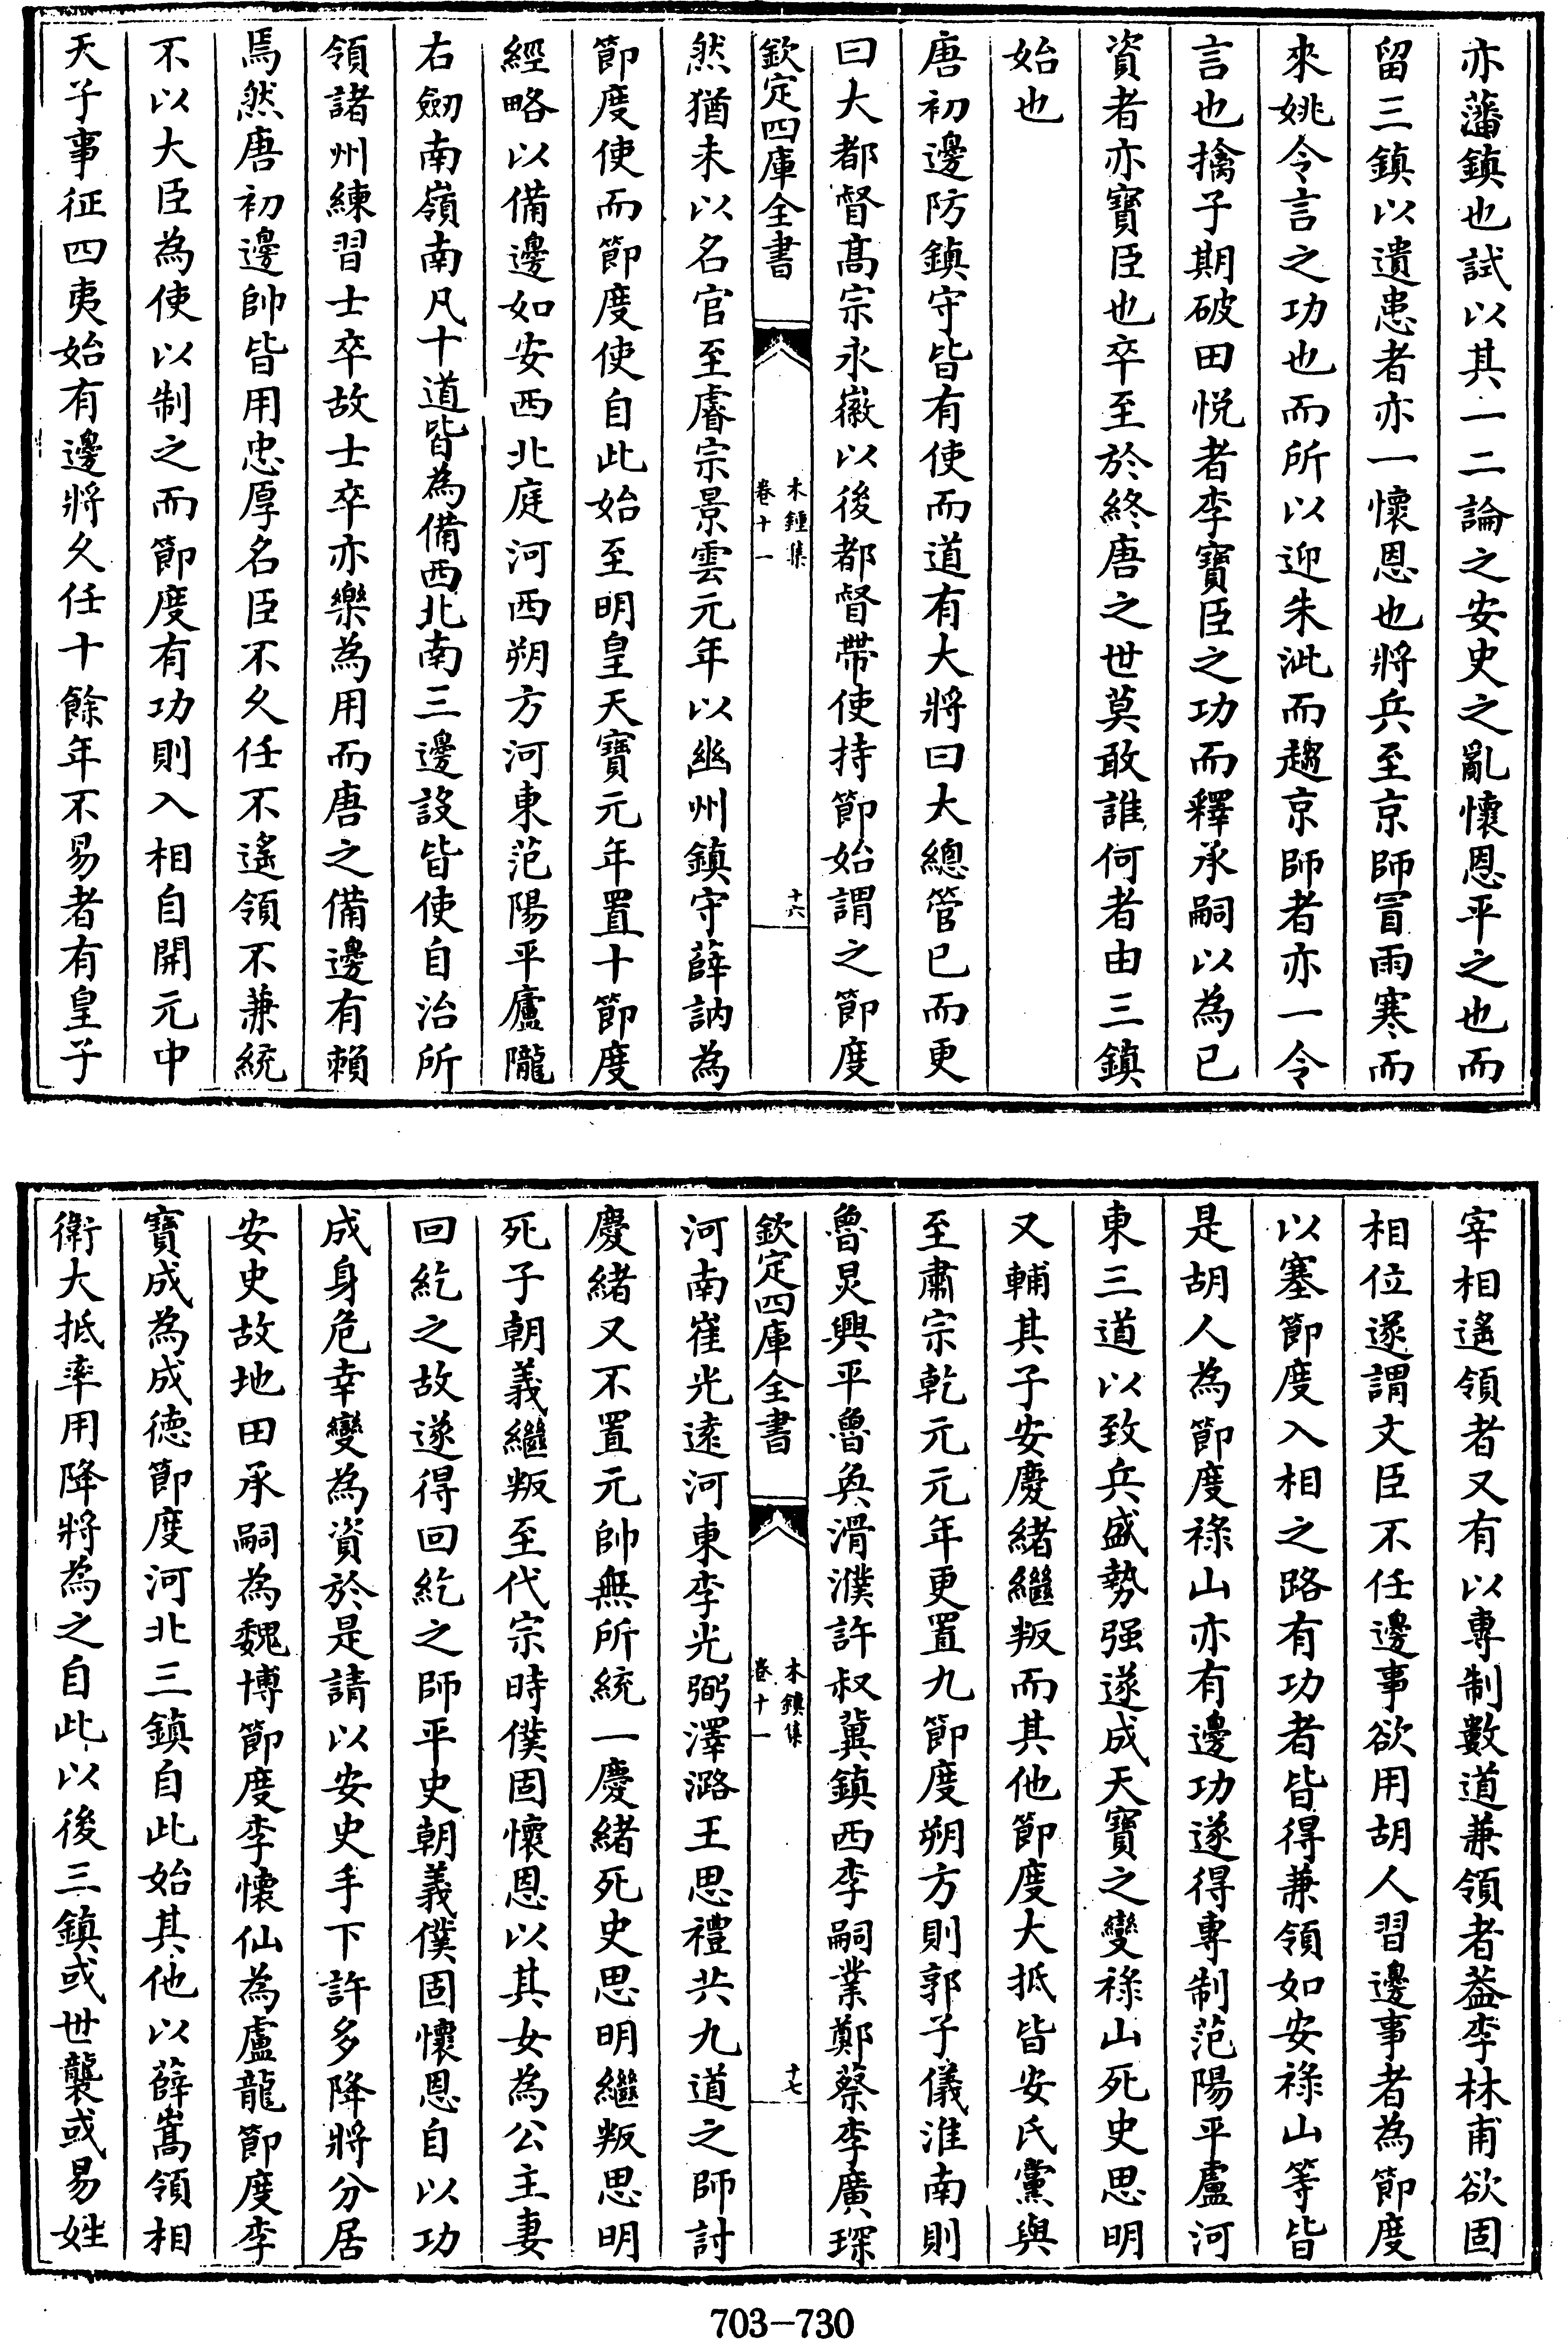 亦藩鎮也試以其一二論之安史之亂懷恩平之也而
留三鎮以遺患者亦一懷恩也將兵至京師冒雨寒而
來姚令言之功也而所以迎朱泚而趨京師者亦一令
言也擒子期破田悅者李寶臣之功而釋承嗣以為已
資者亦寶臣也卒至於終唐之世莫敢誰何者由三鎮
始也
唐初邊防鎮守皆有使而道有大將曰大總管已而更
曰大都督高宗永徽以後都督帶使持節始謂之節度
欽定四庫全書
木鍾集
卷十一
十六
然猶未以名官至睿宗景雲元年以幽州鎮守薛訥為
節度使而節度使自此始至明皇天寶元年置十節度
經略以備邊如安西北庭河西朔方河東范陽平廬隴
右劒南嶺南凡十道皆為備西北南三邊設皆使自治所
領諸州練習士卒故士卒亦樂為用而唐之備邊有賴
焉然唐初邊帥皆用忠厚名臣不久任不遙領不兼統
不以大臣為使以制之而節度有功則入相自開元中
天子事征四夷始有邊將久任十餘年不易者有皇子
宰相遙領者又有以專制數道兼領者葢李林甫欲固
相位遂謂文臣不任邊事欲用胡人習邊事者為節度
以塞節度入相之路有功者皆得兼領如安祿山等皆
是胡人為節度祿山亦有邊功遂得專制范陽平盧河
東三道以致兵盛勢强遂成天寶之變祿山死史思明
又輔其子安慶緒繼叛而其他節度大抵皆安氏黨與
至肅宗乾元元年更置九節度朔方則郭子儀淮南則
魯炅興平魯奐滑濮許叔冀鎮西李嗣業鄭蔡李廣琛
欽定四庫全書
木鍾集
卷十一
十七
河南崔光遠河東李光弼澤潞王思禮共九道之師討
慶緒又不置元帥無所統一慶緒死史思明繼叛思明
死子朝義繼叛至代宗時僕固懷恩以其女為公主妻
回紇之故遂得回紇之師平史朝義僕固懷恩自以功
成身危幸變為資於是請以安史手下許多降將分居
安史故地田承嗣為魏博節度李懷仙為盧龍節度李
寶成為成德節度河北三鎮自此始其他以薛嵩領相
衛大抵率用降將為之自此以後三鎮或世襲或易姓
703-730